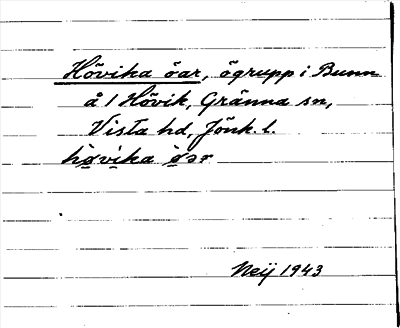 Hövika öar, ögrupp i Bunn
å 1 Hövik, Gränna sn,
Vista hd, Jönk. l.
hø̀vika ø̀ər
Neij 1943